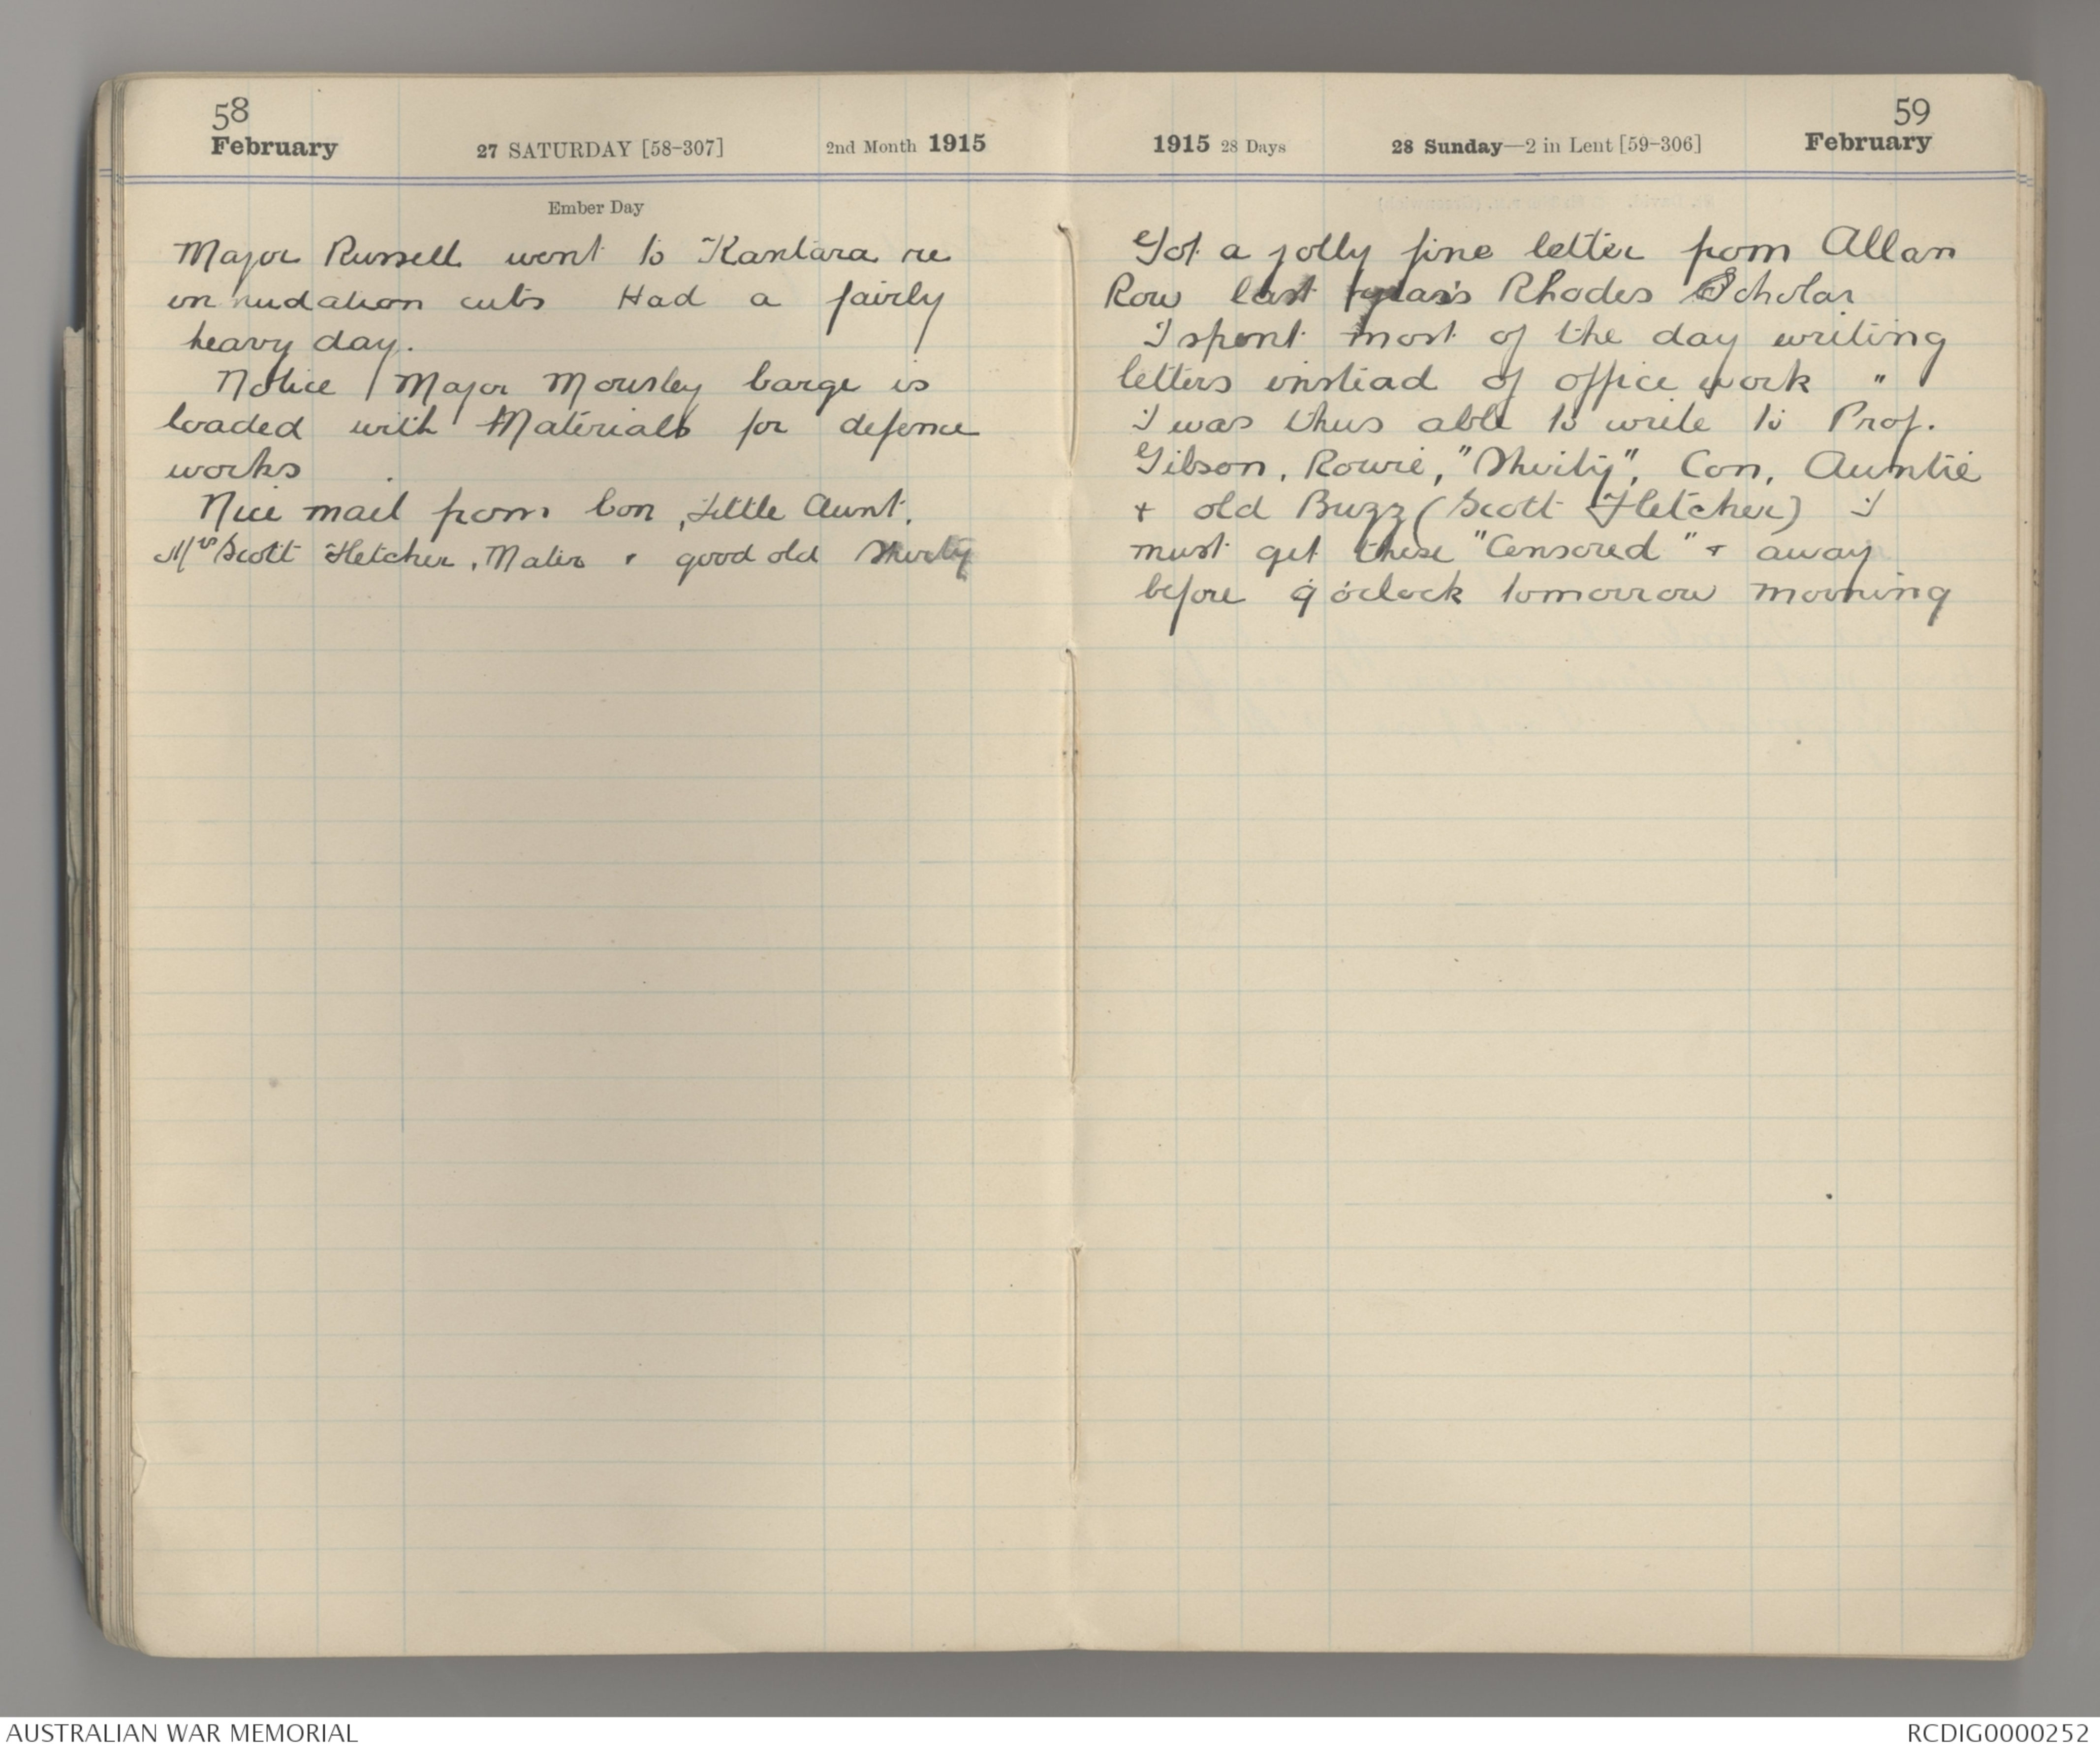 58
February 27 SATURDAY [58-307] 2nd Month 1915
Ember Day
Major Russell went to Kantara re
innudation cuts Had a fairly
heavy day.
Notice Major Mousley barge is
loaded with Materials for defence
works
Nice mail from Con, Little Aunt,
Mrs Scott Fletcher, Mater & good old Shirty
59
1915 28 Days 28 Sunday—2 in Lent [59-306] February
Got a jolly fine letter from Allan
Row last year's Rhodes Scholar
I spent most of the day writing
letters instead of office work "
I was thus able to write to Prof.
Gibson, Rowie, "Shirty", Con, Auntie
+ old Buzz (Scott Fletcher) I
must get these "Censored" + away
before 9 o'clock tomorrow morning
AUSTRALIAN WAR MEMORIAL
RCDIG0000252